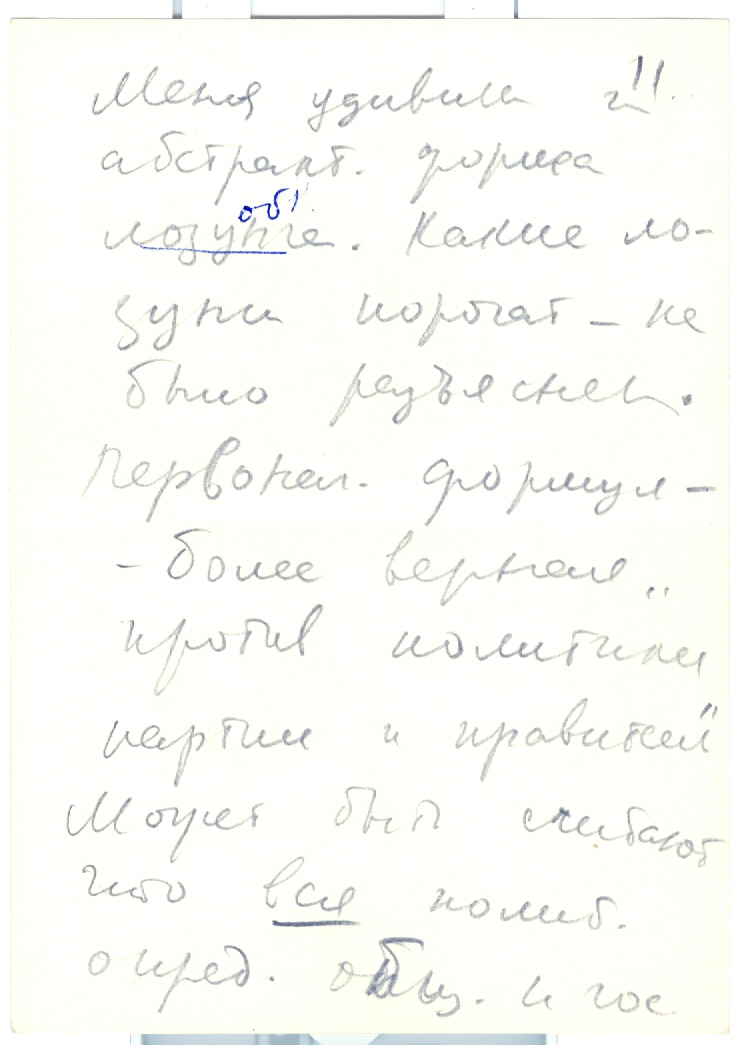 Меня удивила !!
абстракт. форма
об!
лозунга. Какие ло-
зунги порочат – не
было разъяснен.
Первонач. формул –
– более верная „
против политики
партии и правител"
Может быть считают
что вся полит.
опред. общ. и гос